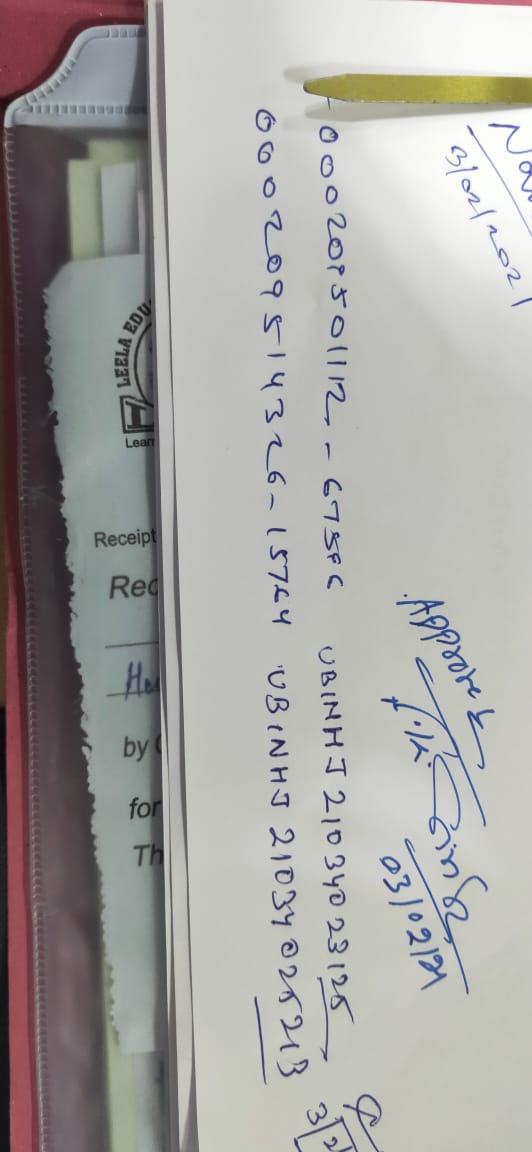 3/02/2021
Approved
03/02/21
000209501112 - 67586 UBINHJ 21034023125
000209514326 - 15764 UBINHJ 21034025213
LEELA EDU
Lean
Receipt
Rec
by
for
Th